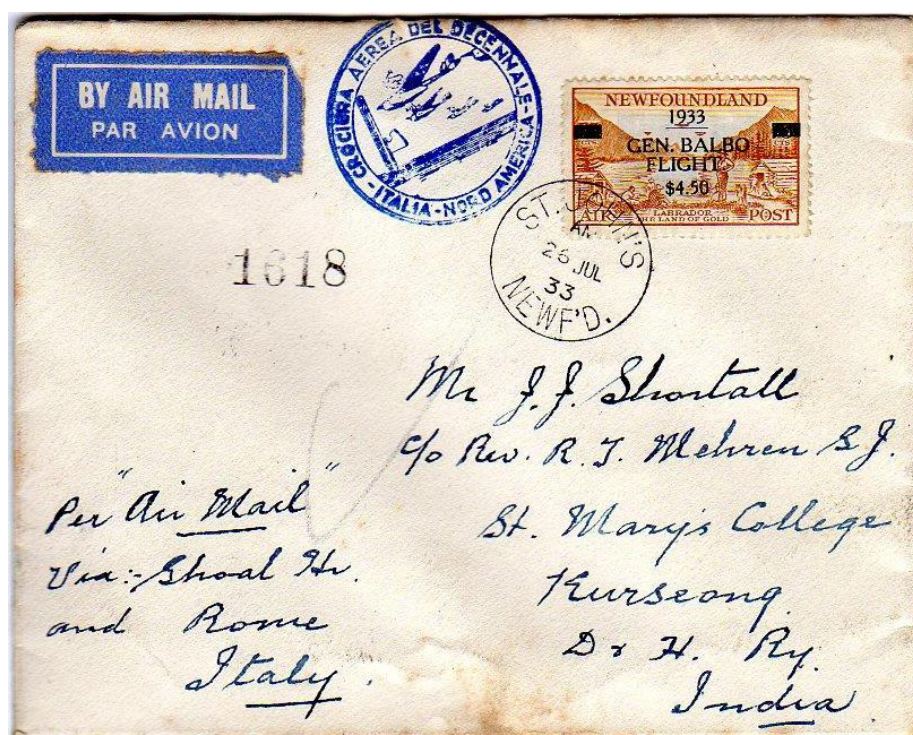 BY AIR MAIL
PAR AVION
CROCIERA AEREA DEL DECENNALE-
-ITALIA-NORD AMERICA
NEWFOUNDLAND
1933
GEN. BALBO
FLIGHT
$4.50
LABRADOR
THE LAND OF GOLD
AIR POST
ST. JOHN'S
AM
26 JUL
33
NEWF'D.
1618
Mr J. J. Shortall
c/o Rev. R. J. Mehren S.J.
St. Mary's College
Kurseong
D & H. Ry.
India
Per "Air Mail"
Via:- Shoal Hr.
and Rome
Italy.